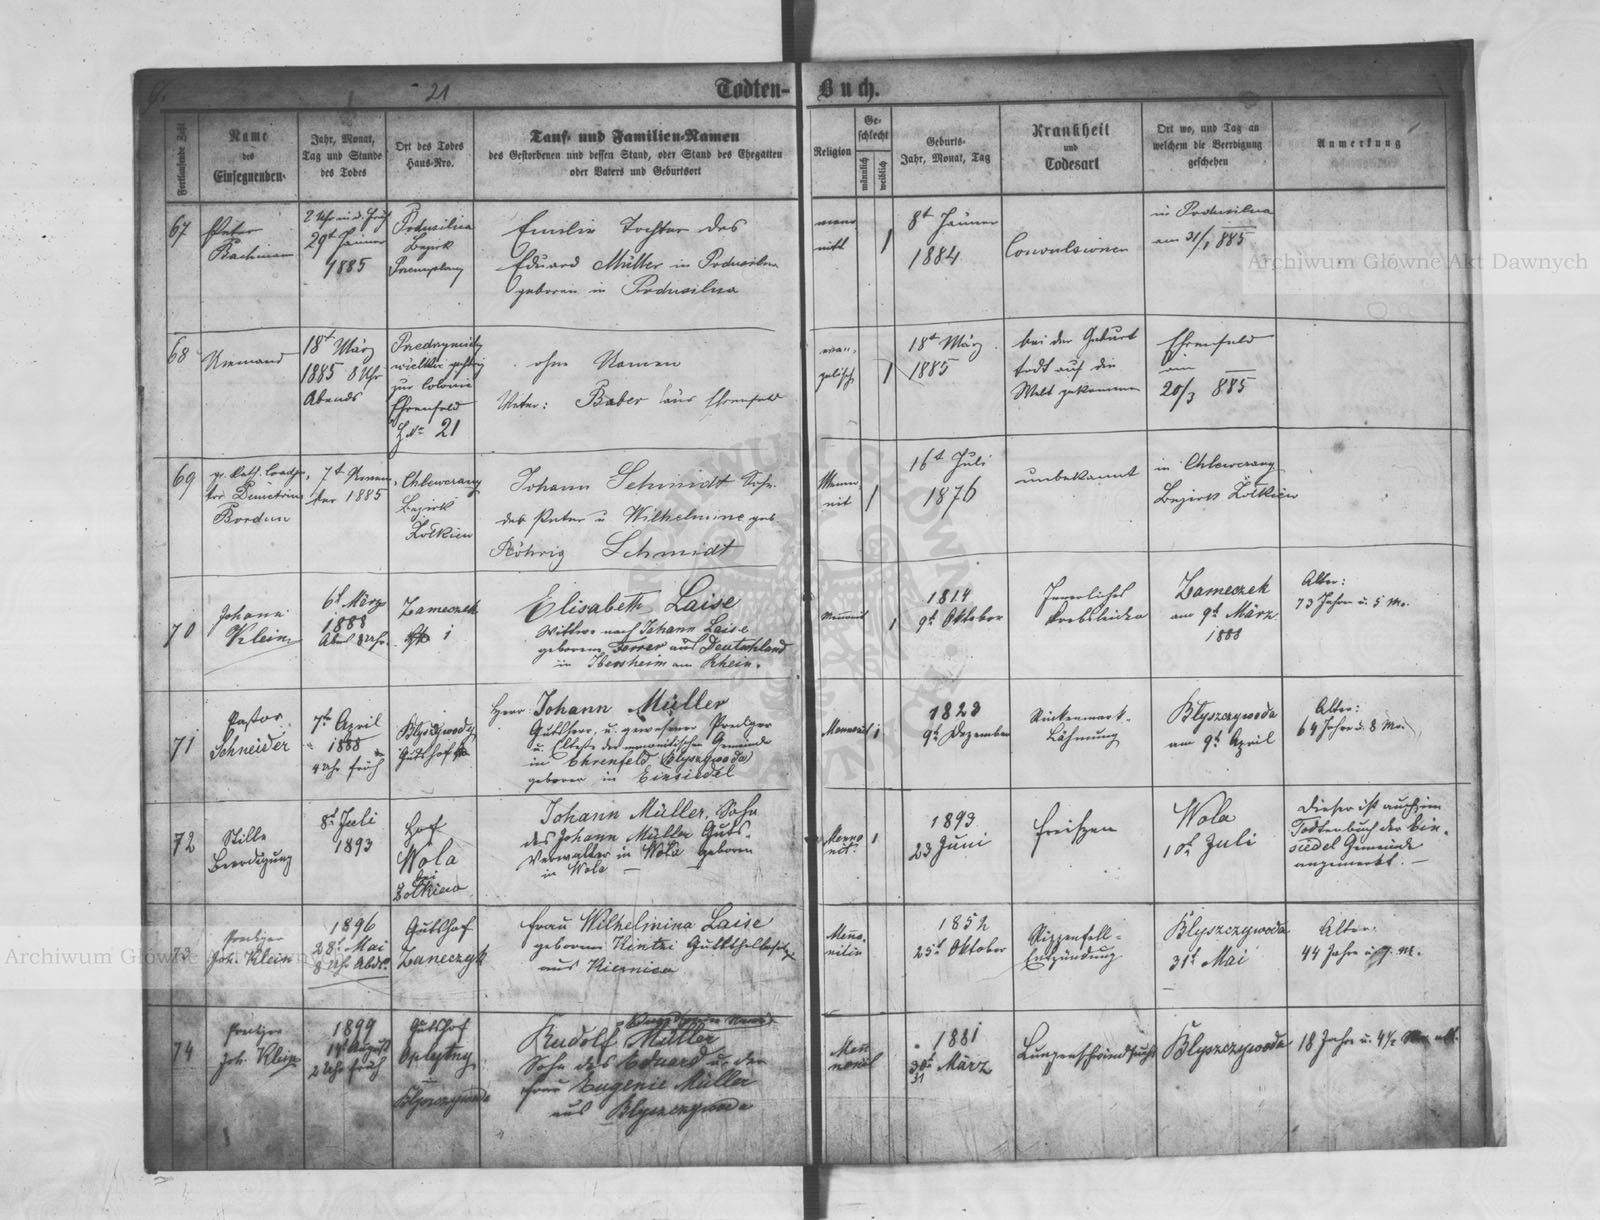 21
Todten-Buch.
Fortlaufende Zahl
Name
des
Einsegnenden
Jahr, Monat,
Tag und Stunde
des Todes
Ort des Todes
Haus-Nro.
Tauf- und Familien-Namen
des Gestorbenen und dessen Stand, oder Stand des Ehegatten
oder Vaters und Geburtsort
Religion
Geschlecht
männlich
weiblich
Geburts-
Jahr, Monat, Tag
Krankheit
und
Todesart
Ort wo, und Tag an
welchem die Beerdigung
geschehen
Anmerkung
67
Peter
Bachmann
2 Uhr in d. Früh
29t Jänner
1885
Podusilna
Bezirk
Emilie Tochter des
Eduard Müller in Podusilna
geboren in Podusilna
menno
nit
1
8t Jänner
1884
Convulsionen
in Podusilna
am 31/1 885
68
Niemand
18t März
1885 8 Uhr
Abends
zur Colonie
Ehrenfeld
21
ohne Namen
Vater: Baber aus Ehrenfeld
evan
gelisch
1
18t März
1885
bei der Geburt
todt auf die
Welt gekommen
Ehrenfeld
am
20/3 885
69
Bordun
7t
ber 1885
Bezirk
Żółkiew
Johann Schmidt Sohn
des Peter u Wilhelmine geb
Röhrig Schmidt
Menno
nit
1
16t Juli
1876
unbekannt
in
Bezirk Żółkiew
70
Johann
Klein
6t März
1888
8 Uhr
Zameczek
1
Elisabeth Laise
Wittwe nach Johann Laise
geborene Ferrer aus Deutschland
in Ibersheim am Rhein.
Mennonit
1
1814
9t Oktober
Innerliches
Zameczek
am 9t März
1888
Alter:
73 Jahre u. 5 Mo.
71
Pastor
Schneider
7t April
1888
4 Uhr früh
Blyszczywody
Gutshof
Herr Johann Müller
Gutsherr, u. gewesener Prediger
u. Elteste der mennonitischen Gemeinde
in Ehrenfeld (Blyszczywoda)
geboren in Einsiedel
Mennonit
1
1823
9t Dezember
Rückenmark-
Lähmung
Blyszczywoda
am 9t April
Alter:
64 Jahre u. 8 Mo.
72
Stille
Beerdigung
8t Juli
1893
Hof
Wola
bei
Zolkiew
Johann Müller, Sohn
des Johann Müller Guts-
Verwalter in Wola geboren
in Wola
Menno
nit.
1
1893
23 Juni
Freisen
Wola
10t Juli
Dieser ist auch im
Todtenbuch der Ein-
siedel Gemeinde
angemerkt.
73
Prediger
Joh. Klein
1896
28t Mai
8 Uhr Abds.
Gutshof
Zameczek
Frau Wilhelmina Laise
geborene Kintzi
aus Kiernica
Menno-
nitin
1852
25t Oktober
Rippenfell-
Entzündung
Blyszczywoda
31t Mai
Alter:
44 Jahre
74
Prediger
Joh. Klein
1899
August
2 Uhr früh
Gutshof
Blyszczywoda
Rudolf Müller
Sohn des Eduard u. der
Frau Eugenie Müller
aus Blyszczywoda
Men
nonit
1881
30t
31
März
Lungenschwindsucht
Blyszczywoda
18 Jahre u. 4½ alt.
Archiwum Główne Akt Dawnych
Archiwum Główne Akt Dawnych